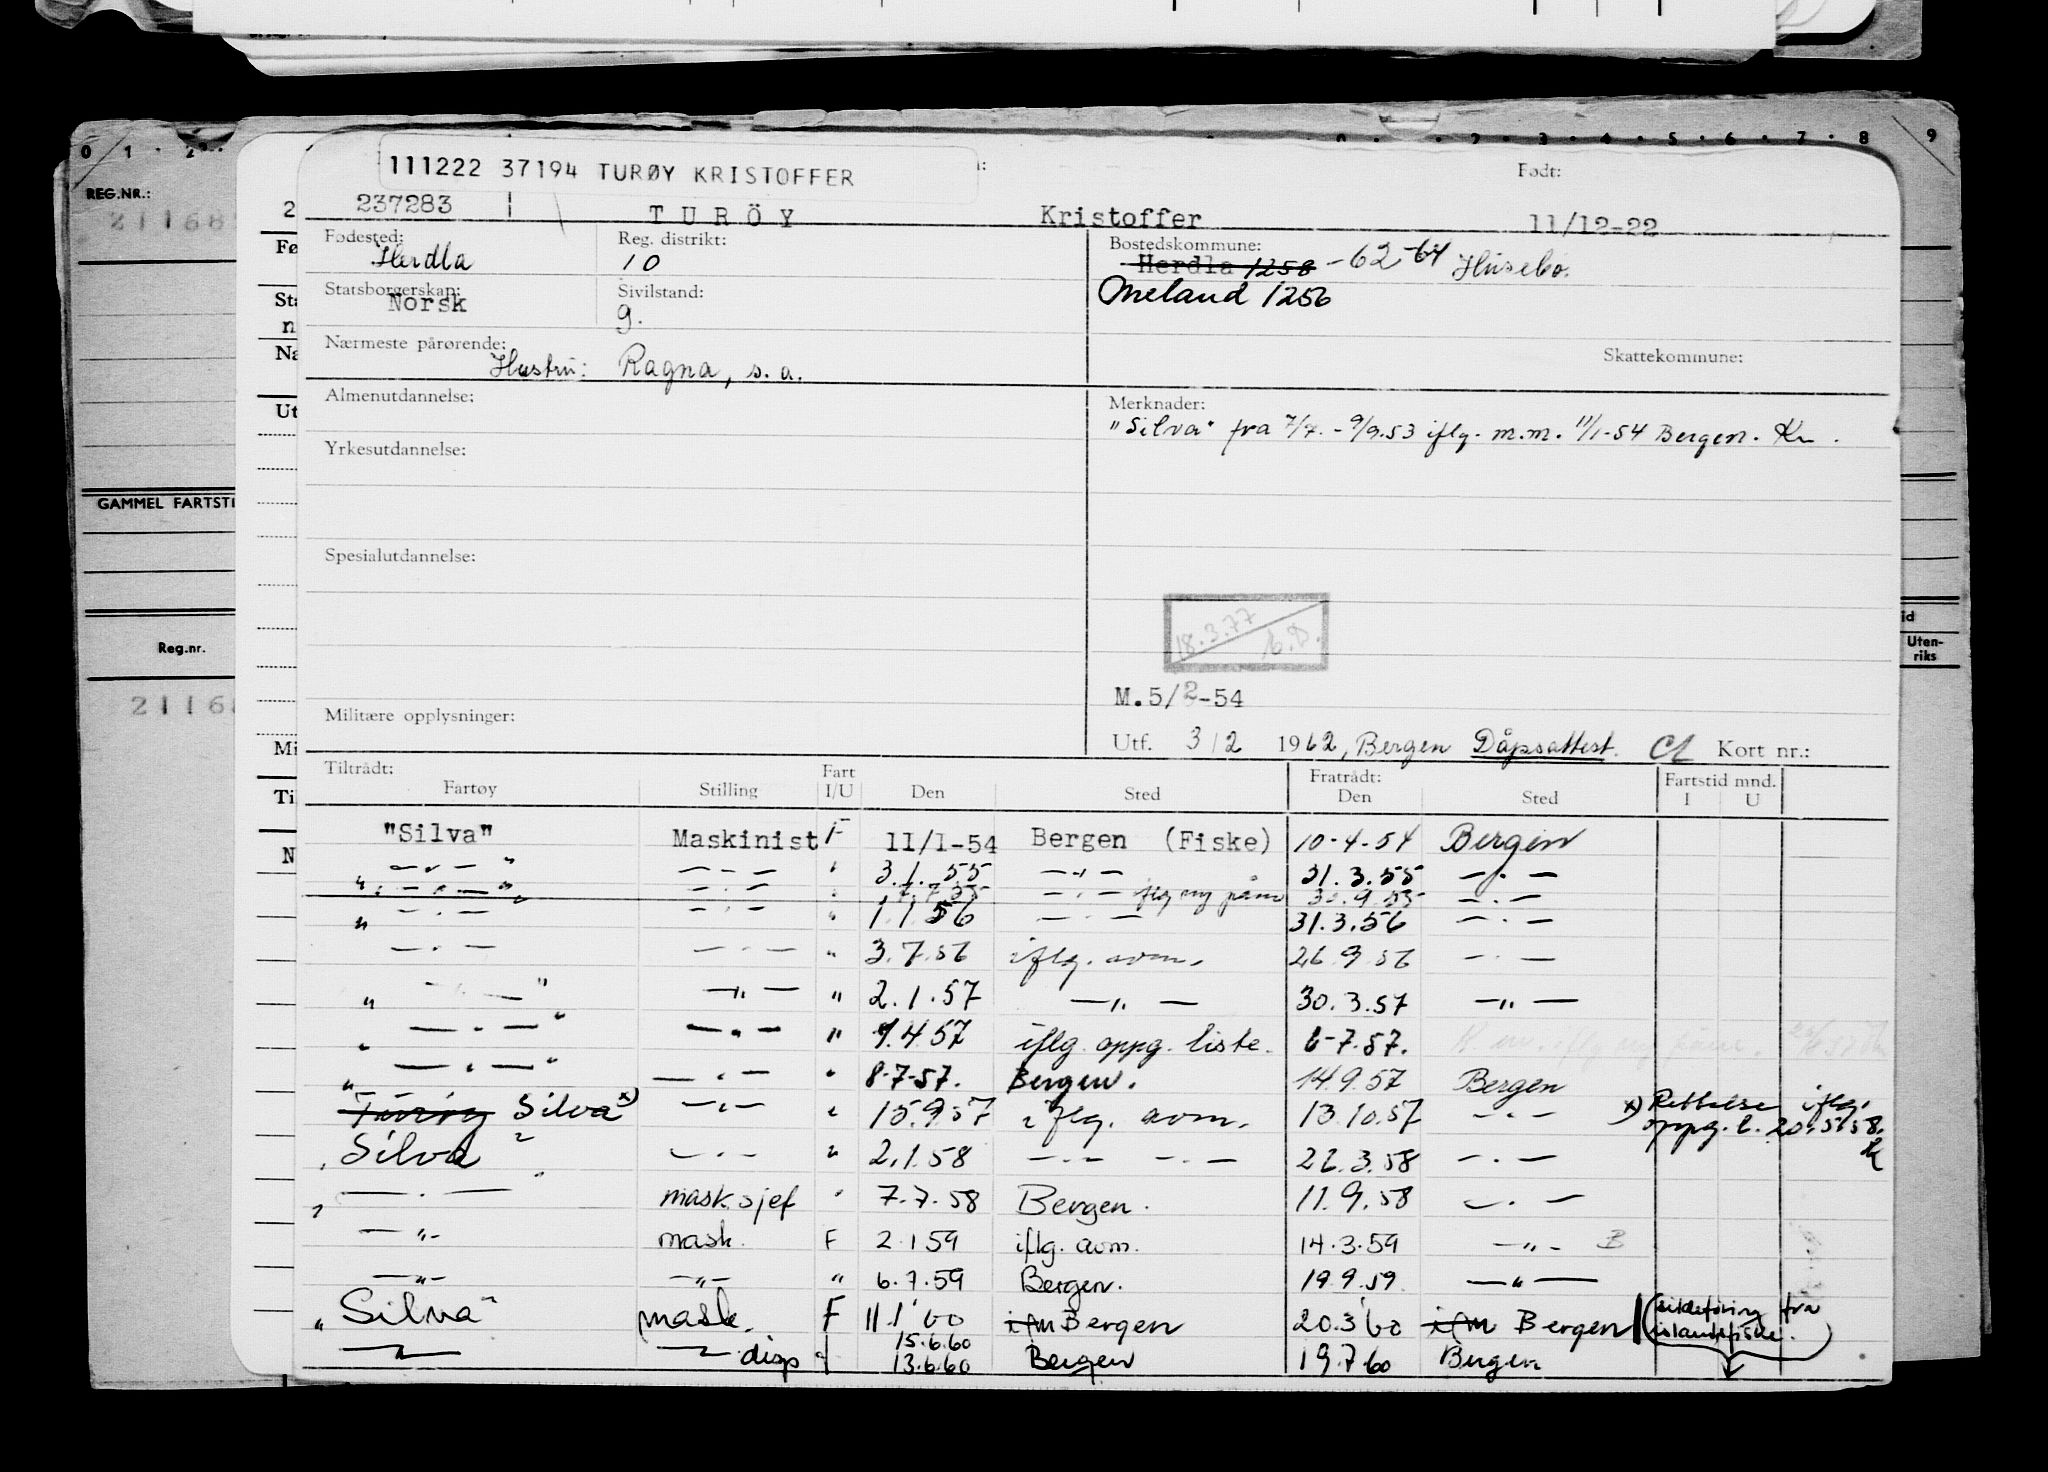 0 1 2 2 3 4 5 6 7 8 9
REG.NR.:
21168
111222 37194 TURØY KRISTOFFER
Født:
237283 TURÖY Kristoffer 11/12-22
Fødested: Herdla
Reg. distrikt: 10
Bostedskommune: Herdla 1258 -62-64 Husebø.
Meland 1256
Statsborgerskap: Norsk
Sivilstand: g.
Nærmeste pårørende: Hustru: Ragna, s.a.
Skattekommune:
Almenutdannelse:
Merknader:
"Silva" fra 7/7.-9/9.53 iflg. m.m. 11/1-54 Bergen. Kr.
Yrkesutdannelse:
GAMMEL FARTSTI
Spesialutdannelse:
18.3.77
Reg.nr.
Uten-
riks
2116
M.5/2-54
Militære opplysninger:
Utf. 3/2 1962, Bergen Dåpsattest. Kort nr.:
Tiltrådt: Fart Fratrådt: Fartstid mnd.
Fartøy Stilling I/U Den Sted Den Sted I U
"Silva" Maskinist F 11/1-54 Bergen (Fiske) 10-4-54 Bergen
— " — — " — " 3.1.55 — " — 31.3.55 — " —
— " — — " — " 7.7.55 — " — iflg ny påm 30.9.55 — " —
— " — — " — " 1.1.56 — " — 31.3.56 — " —
— " — — " — " 3.7.56 iflg. avm. 26.9.56 — " —
— " — — " — " 2.1.57 — " — 30.3.57 — " —
— " — — " — " 1.4.57 iflg. oppg. liste. 6-7.57.
— " — — " — " 8-7-57. Bergen. 14.9.57 Bergen
Turøy Silva x) — " — " 15.9.57 iflg. avm. 13.10.57 — " — x) Rettelse iflg.
oppg. l. 20.5.58.
"Silva" — " — " 2.1.58 — " — — " — 26.3.58 — " —
— " — mask.sjef " 7.7.58 Bergen. 11.9.58 — " —
— " — mask. F 2.1 59 iflg. avm. 14.3.59 — " — B
— " — — " — " 6.7.59 Bergen. 19.9.59. — " —
"Silva" mask. F 11.1 60 ifm Bergen 20.3 60 ifm Bergen (sildeføring fra
islandsfiske.)
15.6.60
— " — — " — disp 13.6.60 Bergen 19.7 60 Bergen